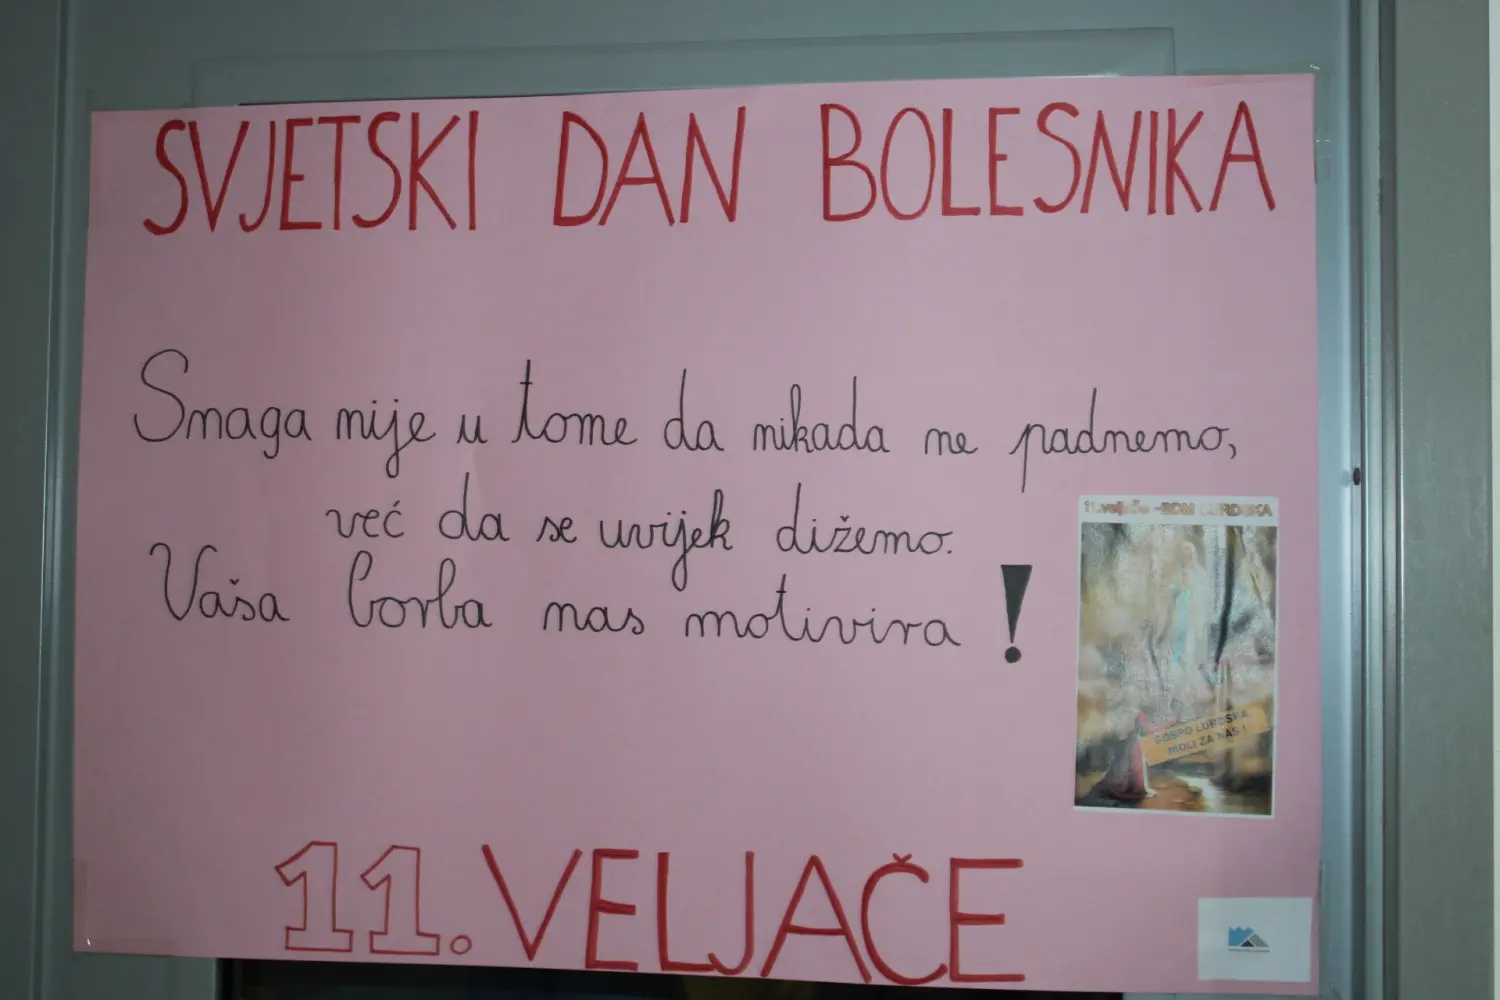 SVJETSKI DAN BOLESNIKA
Smaga nije u tome da nikada ne padnemo,
već da se uvijek dižemo.
Vaša borba nas motivira!
11. veljače -BDM LURDSKA
GOSPO LURDSKA,
MOLI ZA NAS !
11. VELJAČE